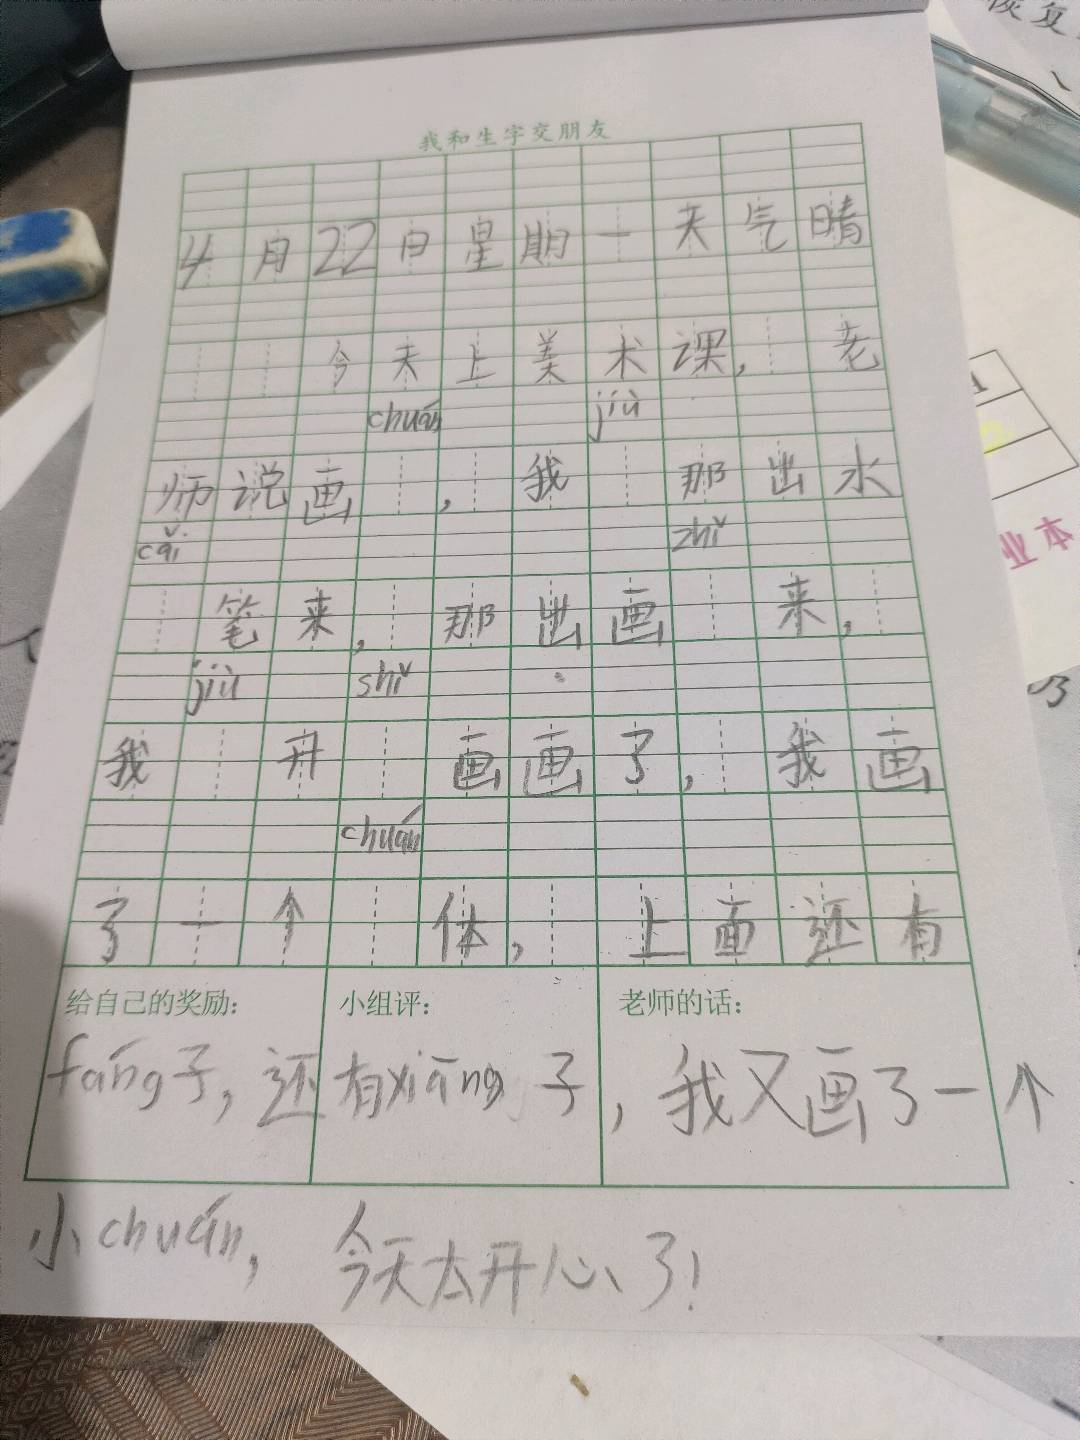 恢复
我和生字交朋友
4月22日星期一天气晴
今天上美术课，老
chuán jiù
师说画，我那出水
cǎi zhǐ
笔来，那出画来，
jiù shǐ
我开画画了，我画
chuán
了一个体，上面还有
给自己的奖励： 小组评： 老师的话：
fáng子，还有xiāng子，我又画了一个
小chuán，今天太开心了！
业本